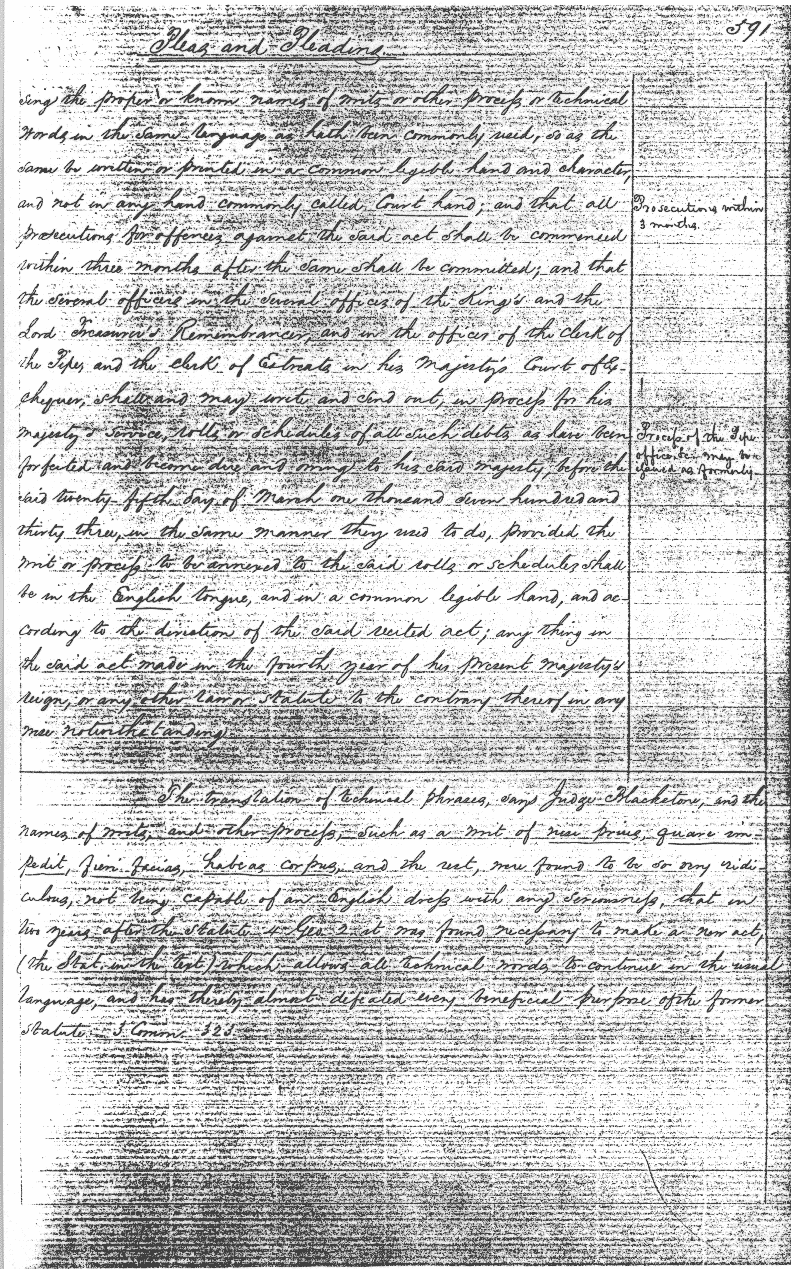 591
Pleas and Pleading
sing the proper or known names of writs or other process or technical
words in the same language as hath been commonly used, so as the
same be written or printed in a common legible hand and character,
and not in any hand commonly called Court hand; and that all
prosecutions for offences against the said act shall be commenced
within three months after the same shall be committed; and that
the several officers in the several offices of the King's and the
Lord Treasurer's Remembrancer, and in the offices of the clerk of
the Pipes and the clerk of Estreats in his Majesty's Court of Ex-
chequer, shall and may write and send out, in process for his
majesty's service, rolls or schedules of all such debts as have been
forfeited and become due and owing to his said majesty, before the
said twenty-fifth day of March one thousand seven hundred and
thirty three, in the same manner they used to do, provided the
writ or process to be annexed to the said rolls or schedules shall
be in the English tongue, and in a common legible hand, and ac-
cording to the direction of the said recited act; any thing in
the said act made in the fourth year of his present majesty's
reign, or any other law or statute to the contrary thereof in any
wise notwithstanding
Prosecutions within
3 months.
Process of the Pipe
office &c. may be
issued as formerly
The translation of technical phrases, says Judge Blackstone, and the
names of writs, and other process, such as a writ of nisi prius, quare im-
pedit, fieri facias, habeas corpus, and the rest, were found to be so very ridi-
culous, not being capable of an English dress with any seriousness, that in
two years after the statute 4 Geo 2 it was found necessary to make a new act,
(the Stat. in the text) which allows all technical words to continue in the usual
language, and has thereby almost defeated every beneficial purpose of the former
statute. 3 Comm. 323